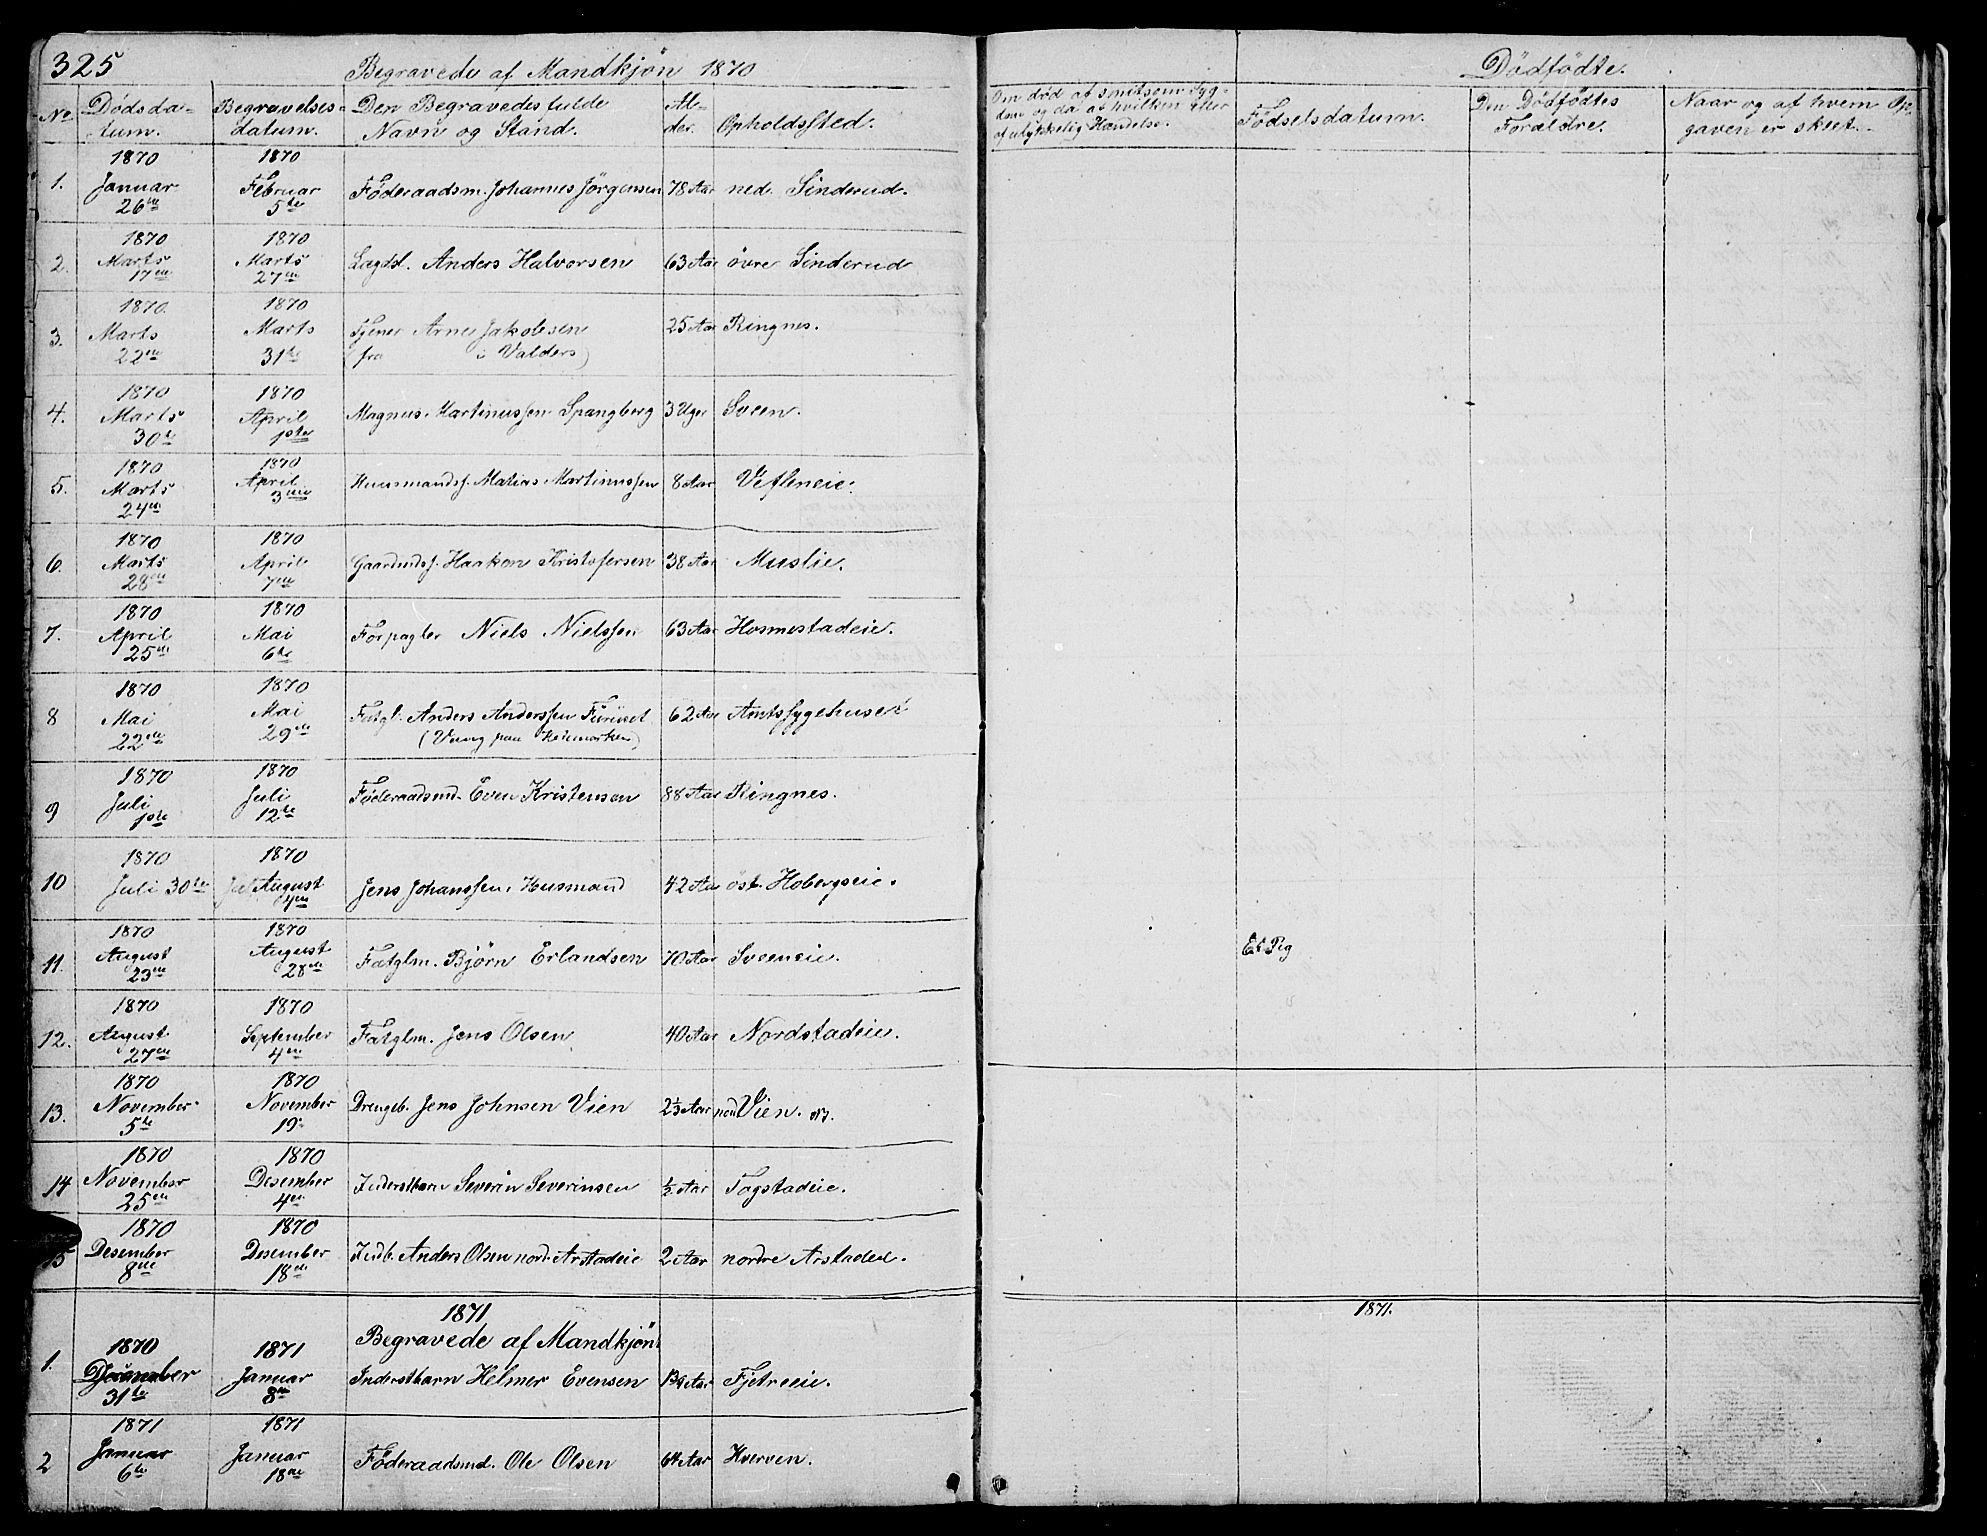 325
Begravede af Mandkjön 1870
Dödfödte.
No. Dödsda-tum. Begravelses-datum. Den Begravedes fulde Navn og Stand. Al-der. Opholdssted.
Om död af smitsom Syg-dom og da af hvilken eller af ulykkelig Hændelse. Födselsdatum. Den Dödfödtes Forældre. Naar og af hvem Op-gaven er skeet.
1. 1870 Januar 26de 1870 Februar 5te Föderaadsm. Johannes Jörgensen 78 Aar ned. Sinderud.
2. 1870 Marts 17en 1870 Marts 27en Lægdsl. Anders Halvorsen 63 Aar övre Sinderud
3. 1870. Marts 22en 1870 Marts 31te Tjener Arne Jakobsen 25 Aar Ringnes.
(fra i Valders)
4. 1870 Marts 30te 1870 April 1ste Magnus Martinussen Spangberg 3 Uger Sveen.
5. 1870 Marts 24en 1870 April 3die Huusmandss. Matias Martinussen 8 Aar Vefleneie.
6. 1870 Marts 28en 1870 April 7en Gaardmdss. Haakon Kristofersen 38 Aar Muslie.
7. 1870 April 25de 1870 Mai 6te Forpagter Niels Nielssen 63 Aar Hosmestadeie.
8 1870 Mai 22de 1870 Mai 29de Fatgl. Anders Anderssen Furuset 62 Aar Amtssygehuset
(Vang paa Hedemarken)
9 1870 Juli 1ste 1870 Juli 12te Föderaadsmd. Even Kristensen 88 Aar Ringnes.
10 1870 Juli 30te 1870 August 4en Jens Johanssen, Husmand 42 Aar öst. Hobergseie.
11. 1870 August 23en 1870 August 28en Fatglm. Björn Erlandsen 70 Aar Sveeneie.
Et Pg
12. 1870 August 27en 1870 September 4en Fatglm. Jens Olsen 40 Aar Nordstadeie.
13. 1870 November 5te 1870 November 19. Drengeb. Jens Johnsen Vien 2⅓ Aar ned Vien.
14 1870 November 25en 1870 Desember 4en Inderstbarn Severin Severinsen ½ Aar Togstadeie.
15 1870 Desember 8de 1870 Desember 18de Indb. Anders Olsen nord. Arstadeie 2 Aar nordre Arstadeie.
1871
1871.
Begravede af Mandkjön
1. 1870 Desember 31te 1871 Januar 8en Inderstbarn Helmer Evensen Aar Fjetreeie.
2 1871 Januar 6te 1871 Januar 18de Föderaadsmd. Ole Olsen 64 Aar Hverven.